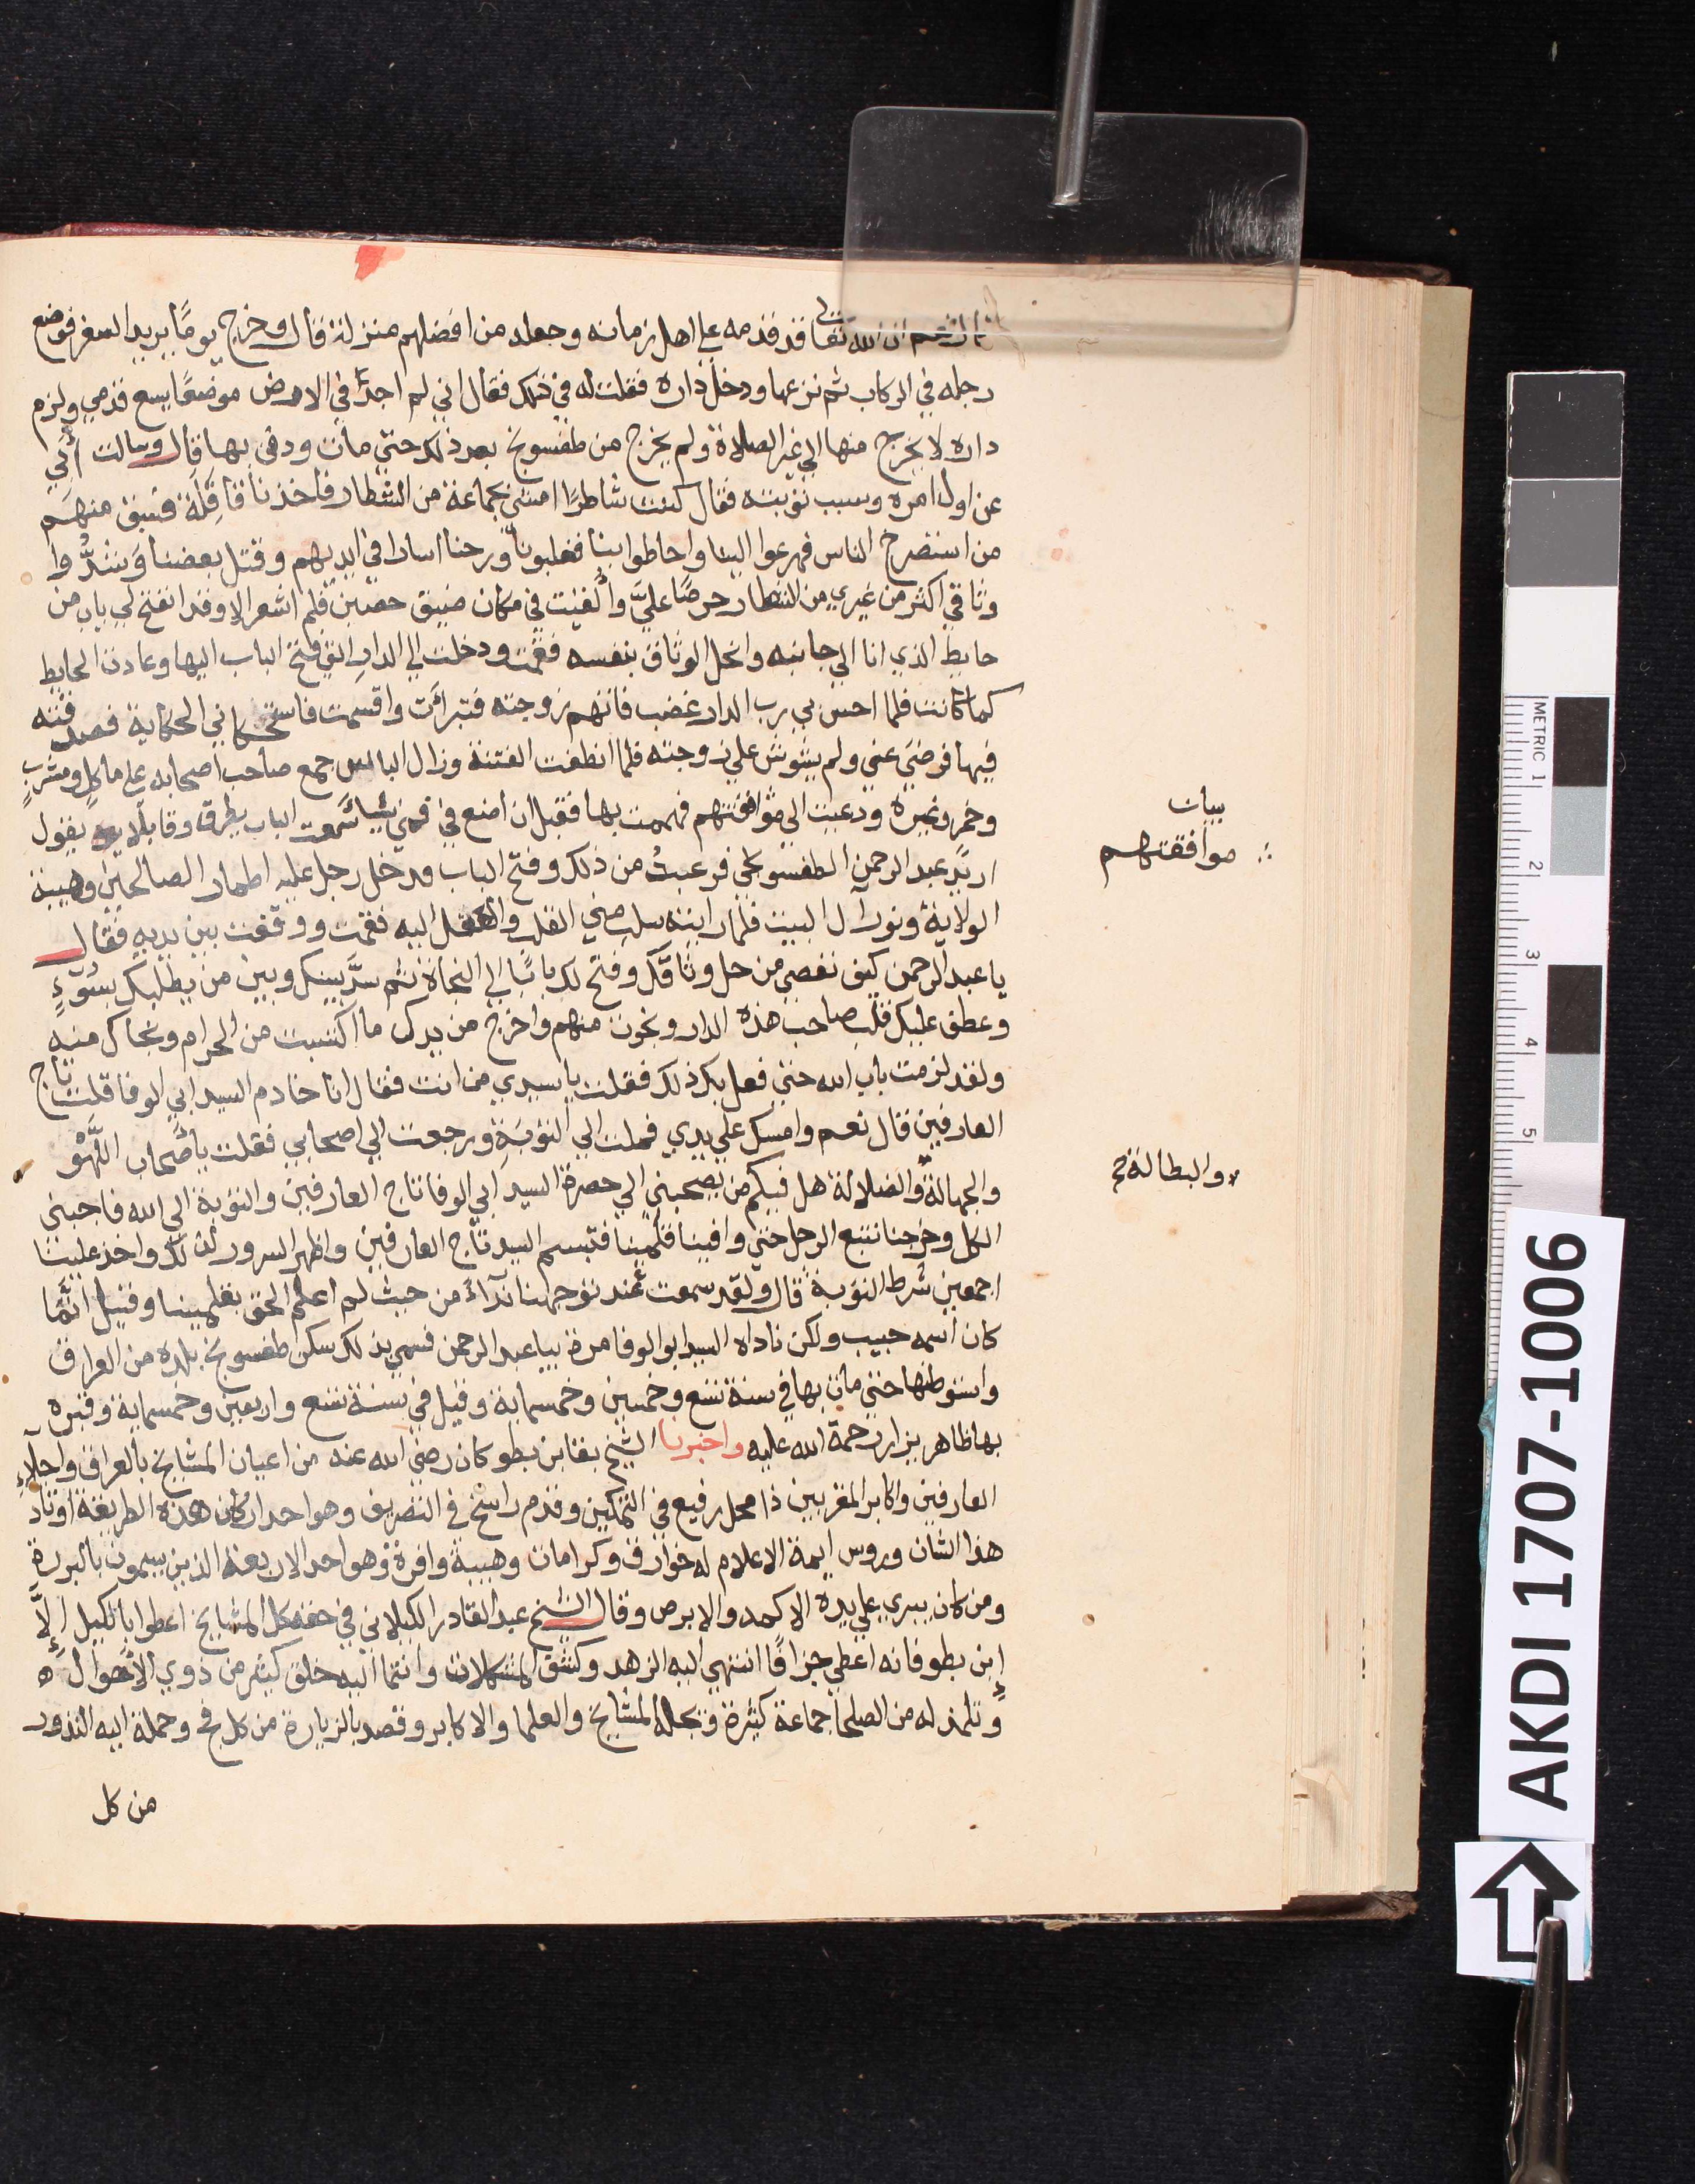 ان الله تعالى قد قدمه على اهل زمانه وجعله من افضلهم منزلة قال وخرج يومًا يريد السفر فوضع
رجله في الركاب ثم نزعها ودخل داره فقلت له في ذلك فقال اني لم اجد في الارض موضعًا يسع قدمي ولزم
داره لا يخرج منها الي غير الصلاة ولم يخرج من طفسونج بعد ذلك حتي مات ودفن بها قال وسالت ابي
عن اول امره وسبب توبته فقال كنت شاطرًا امشي بجماعة من الشطار فاخذنا قافلة فسبق منهم
من استصرخ الناس فهرعوا الينا واحاطوا بنا فغلبونا ورحنا اسارا في ايديهم وقتل بعضنا وشدُّوا
وثاقي اكثر من غيري من الشطار حرصًا عليَّ وأُلقيت في مكان ضيق حصين فلم اشعر الا وقد انفتح لي باب من
حايط الذي انا الي جانبه وانحل الوثاق بنفسه فقمت ودخلت الي الدار التي فتح الباب اليها وعادت الحايط
كما كانت فلما احس بي رب الدار غضب فاتهم زوجته فتبرأت واقسمت فاستحكاني الحكاية فصدقته
فيها فرضي عني ولم يشوش علي زوجته فلما انطفت الفتنة وزال الباس جمع صاحب اصحابه على ماكلٍ ومشربٍ
وخمر وغيره ودعيت الي موافقتهم فهممت بها فقبل ان اضع في فمي شيئا سمعت الباب يطرق وقايلًا يقول
اريد عبد الرحمن الطفسونجي فرعبتُ من ذلك وفتح الباب فدخل رجل عليه اطمار الصالحين وهيبة
الولاية ونور آل البيت فلما رايته سلب مني القلب والعقل اليه فقمت ووقفت بين يديه فقال
يا عبد الرحمن كيف تعصي من حل وثاقك وفتح لك بابًا الي النجاة ثم سدَّ بينك وبين من يطلبك بسوءٍ
وعطف عليك قلب صاحب هذه الدار ونجوت منهم واخرج من يدك ما اكتسبت من الحرام ونجاك منه
ولقد لزمت باب الله حتي فعل بك ذلك فقلت يا سيدي من انت فقال انا خادم السيد ابي الوفا قلت تاج
العارفين قال نعم وامسك علي يدي فملت الي التوبة ورجعت الي اصحابي فقلت يا أصحاب اللَّهْو
والجهالة والضلالة هل فيكم من يصحبني الي حضرة السيد ابي الوفا تاج العارفين والتوبة الي الله فاجبني
الكل وخرجنا نتبع الرجل حتي وافينا قلمينا فتبسم السيد تاج العارفين واظهر السرور لذلك واخذ علينا
اجمعين شرط التوبة قال ولقد سمعت عند توجهنا نداءً من حيث لم اعلم الحق بقلمينا وقيل انَّمَا
كان اسمه حبيب ولكن ناداه السيد ابو الوفا مرة بيا عبد الرحمن فسمي بذلك سكن طفسونج بلده من العراق
واستوطنها حتي مات بها في سنة تسع وخمسين وخمسماية وقيل في سنة تسع واربعين وخمسماية وقبره
بها ظاهر يزار رحمة الله عليه واخبرنا الشيخ بقا بن بطو كان رضي الله عنه من اعيان المشايخ بالعراق واجلاء
العارفين واكابر المقربين ذا محل رفيع في التمكين وقدم راسخ في التصريف وهو احد اركان هذه الطريقة اوتاد
هذا الشان وروس ايمة الاعلام له خوارق وكرامات وهيبة وافرة وهو احد الاربعة الذين يسمون بالبررة
ومن كان يبري علي يده الاكمه والابرص وقال الشيخ عبد القادر الكيلاني في حقه كل المشايخ اعطوا بالكيل الَّا
ابن بطو فانه اعطي جزافًا انتهي اليه الزهد وكشف المشكلات وانتما اليه خلق كثير من ذوي الاحوال ه
وتلمذ له من الصلحا جماعة كثيرة وبجله المشايخ والعلما والاكابر وقصد بالزيارة من كل فج وحملة اليه النذور
من كل
بيان
موافقتهم
والبطالة
AKDI 1707-1006
METRIC 1 2 3 4 5